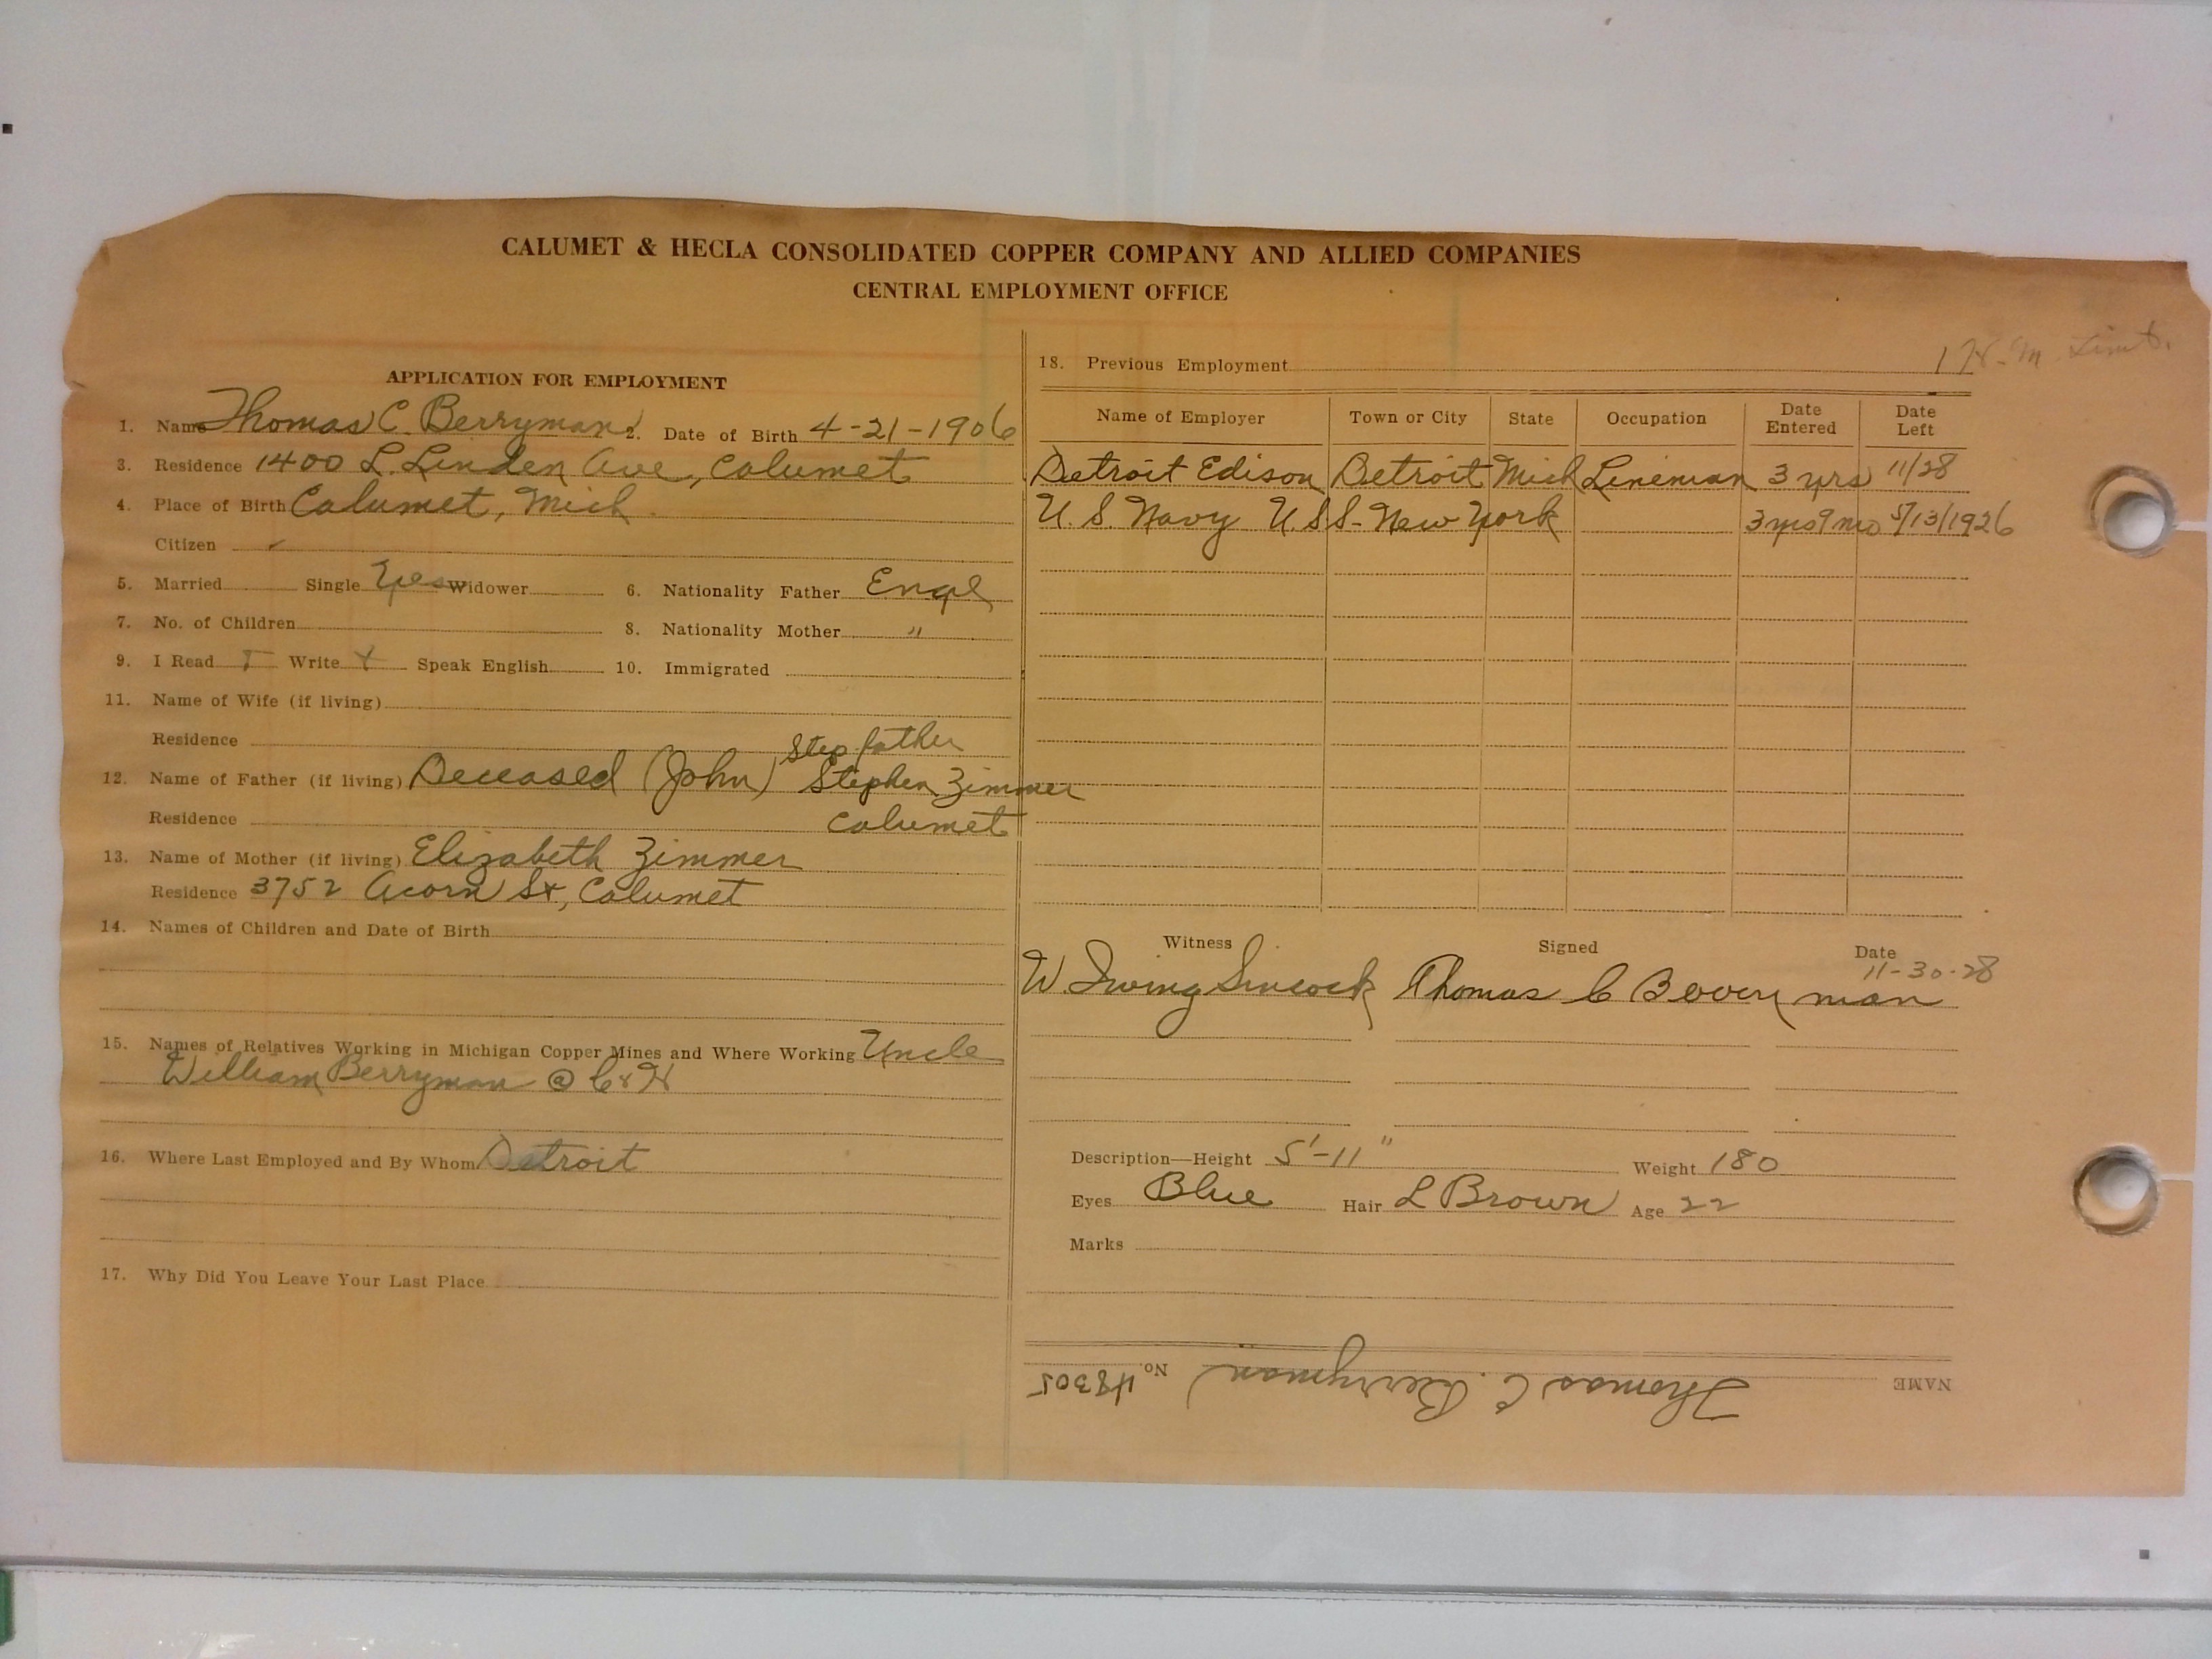 CALUMET & HECLA CONSOLIDATED COPPER COMPANY AND ALLIED COMPANIES
CENTRAL EMPLOYMENT OFFICE
APPLICATION FOR EMPLOYMENT
1. Name Thomas C. Berryman 2. Date of Birth 4-21-1906
3. Residence 1400 L. Linden Ave, Calumet
4. Place of Birth Calumet, Mich
Citizen ✓
5. Married Single Yes Widower 6. Nationality Father Engl
7. No. of Children 8. Nationality Mother "
9. I Read Write Speak English 10. Immigrated
11. Name of Wife (if living)
Residence
Step father
12. Name of Father (if living) Deceased (John) Stephen Zimmer
Residence Calumet
13. Name of Mother (if living) Elizabeth Zimmer
Residence 3752 Acorn St, Calumet
14. Names of Children and Date of Birth
15. Names of Relatives Working in Michigan Copper Mines and Where Working Uncle
William Berryman @ C & H
16. Where Last Employed and By Whom Detroit
17. Why Did You Leave Your Last Place
18. Previous Employment
Name of Employer Town or City State Occupation Date Entered Date Left
Detroit Edison Detroit Mich Lineman 3 yrs 11/28
U.S. Navy U.S.S. New York 3 yrs 9 mo 5/13/1926
Witness Signed Date
11-30-28
W. Irving Sincock Thomas C Berryman
Description—Height 5'-11" Weight 180
Eyes Blue Hair L Brown Age 22
Marks
NAME Thomas C. Berryman No. 48305